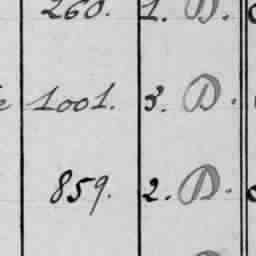 260. 1. D.
1001. 3. D.
859. 2. D.